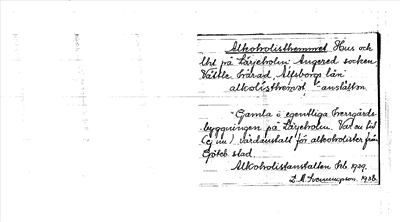 Alkoholisthemmet Hus och
lht på Lärjeholm Angered socken
Vättle härad, Älfsborgs län
alkolisthemmet, -anstalten
Gamla o egentliga herrgårds-
byggningen på Lärjeholm. Var en tid
(ej nu) vårdanstalt för alkoholister från
Göteb. stad.
Alkoholistanstalten Feb. 1929.